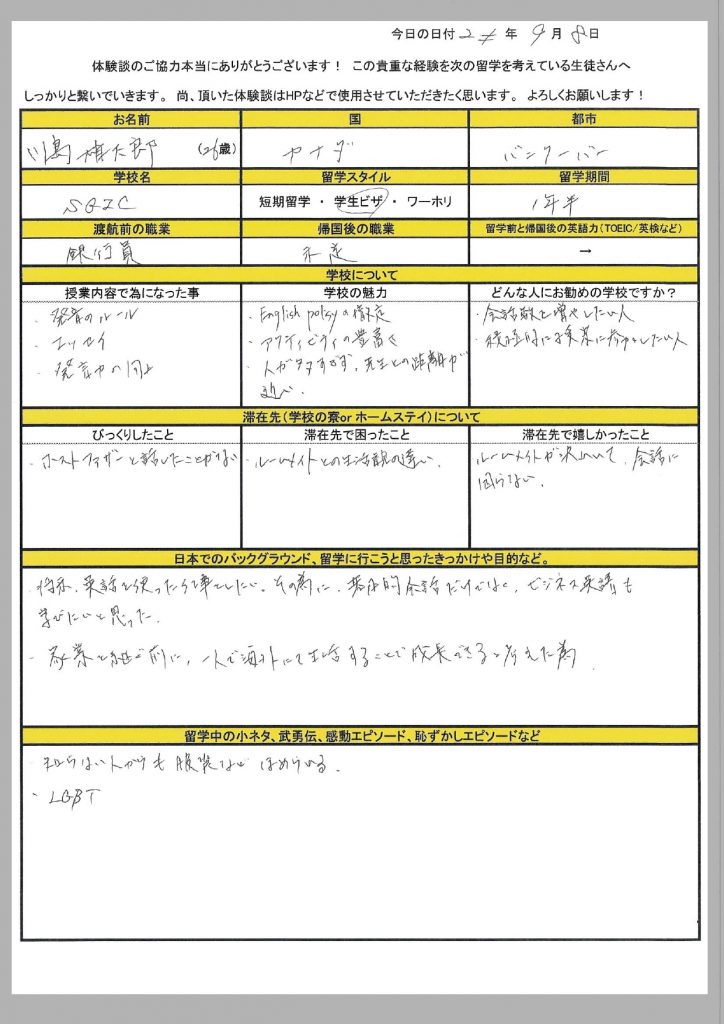 今日の日付 2 年 9 月 8 日
体験談のご協力本当にありがとうございます! この貴重な経験を次の留学を考えている生徒さんへ
しっかりと繋いでいきます。 尚、頂いた体験談はHPなどで使用させていただきたく思います。 よろしくお願いします!
お名前 国 都市
川島 太郎 (26歳) カナダ バンクーバー
学校名 留学スタイル 留学期間
SGIC 短期留学 ・ 学生ビザ ・ ワーホリ 1年半
渡航前の職業 帰国後の職業 留学前と帰国後の英語力(TOEIC/英検など)
銀行員 未定 →
学校について
授業内容で為になった事 学校の魅力 どんな人にお勧めの学校ですか?
・発音のルール ・English policyの徹底 ・会話数を増やしたい人
・エッセイ ・アクティビティの豊富さ ・積極的に授業に参加したい人
・発音力の向上 ・人が多すぎず、先生との距離が
近い。
滞在先(学校の寮or ホームステイ)について
びっくりしたこと 滞在先で困ったこと 滞在先で嬉しかったこと
・ホストファザーと話したことがない ・ルームメイトとの生活観の違い。 ルームメイトが沢山いて、会話に
困らない。
日本でのバックグラウンド、留学に行こうと思ったきっかけや目的など。
・将来、英語を使った仕事をしたい。その為に、基本的会話だけではなく、ビジネス英語も
学びたいと思った。
・家業を継ぐ前に、一人で海外にて生活することで成長できると考えた為
留学中の小ネタ、武勇伝、感動エピソード、恥ずかしエピソードなど
・知らない人からも服装など ほめられる。
・LGBT